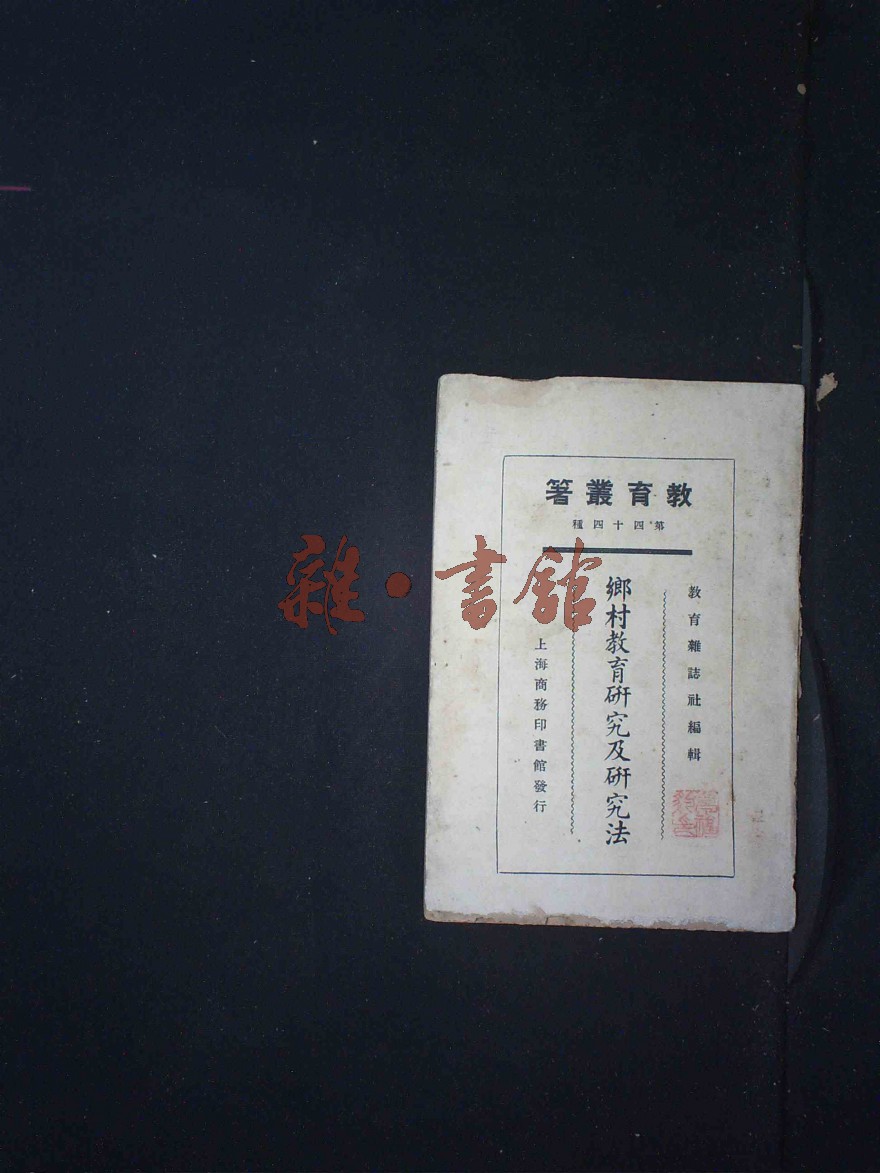 教育叢著
第四十四種
教育雜誌社編輯
鄉村教育研究及研究法
上海商務印書館發行
雜·書館